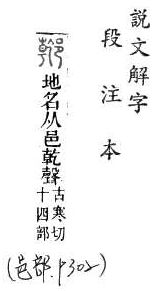 說文解字
段注本
地名从邑乾聲
古寒切
十四部
(邑部.P302)